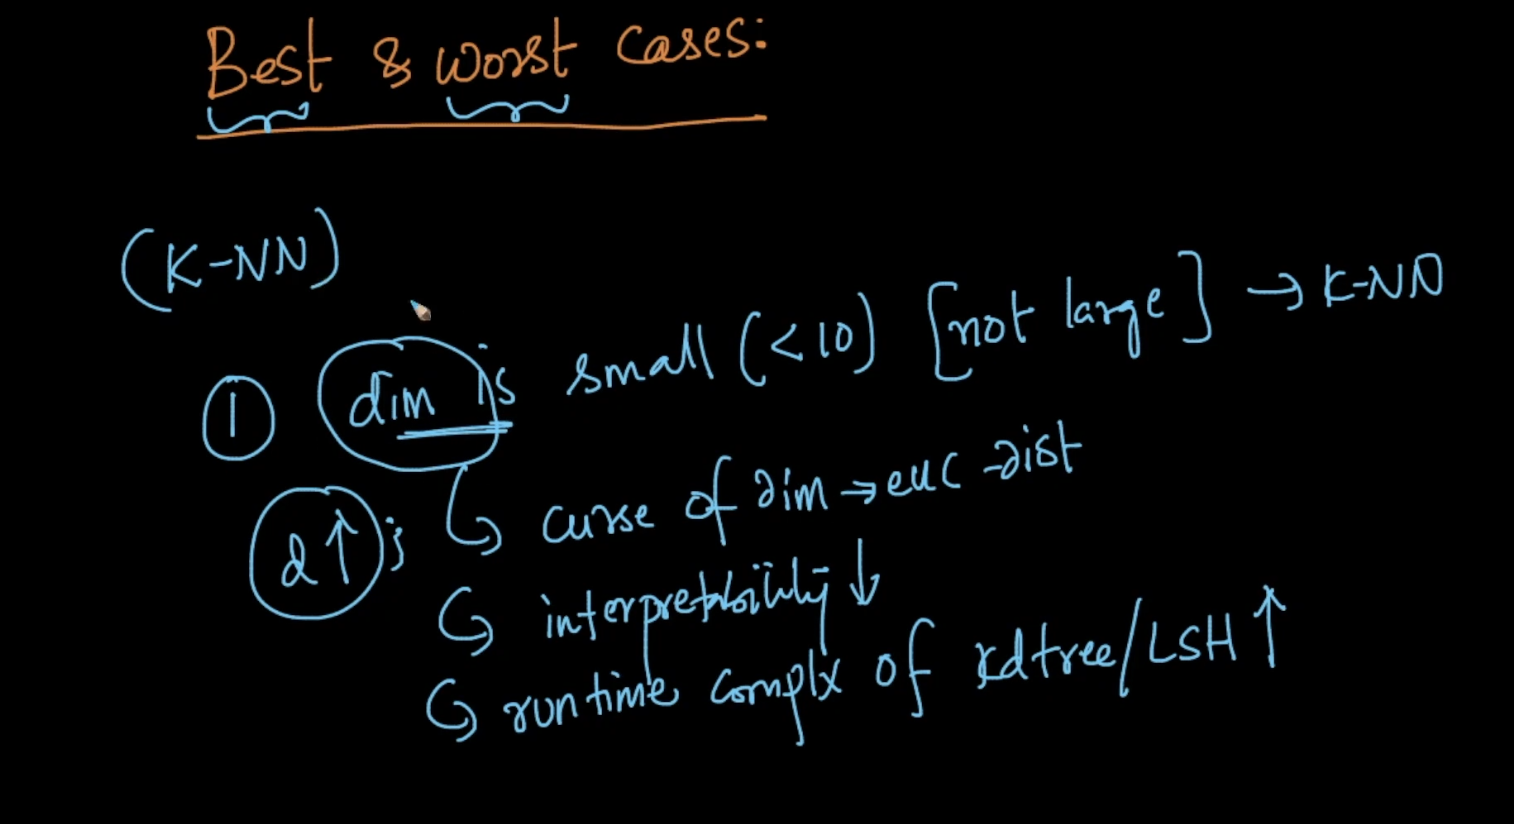 Best & Worst Cases:
(K-NN)
① dim is small (<10) [not large] → K-NN
d↑; ↳ curse of dim → euc-dist
↳ interpretability ↓
↳ runtime complx of kdtree/LSH ↑